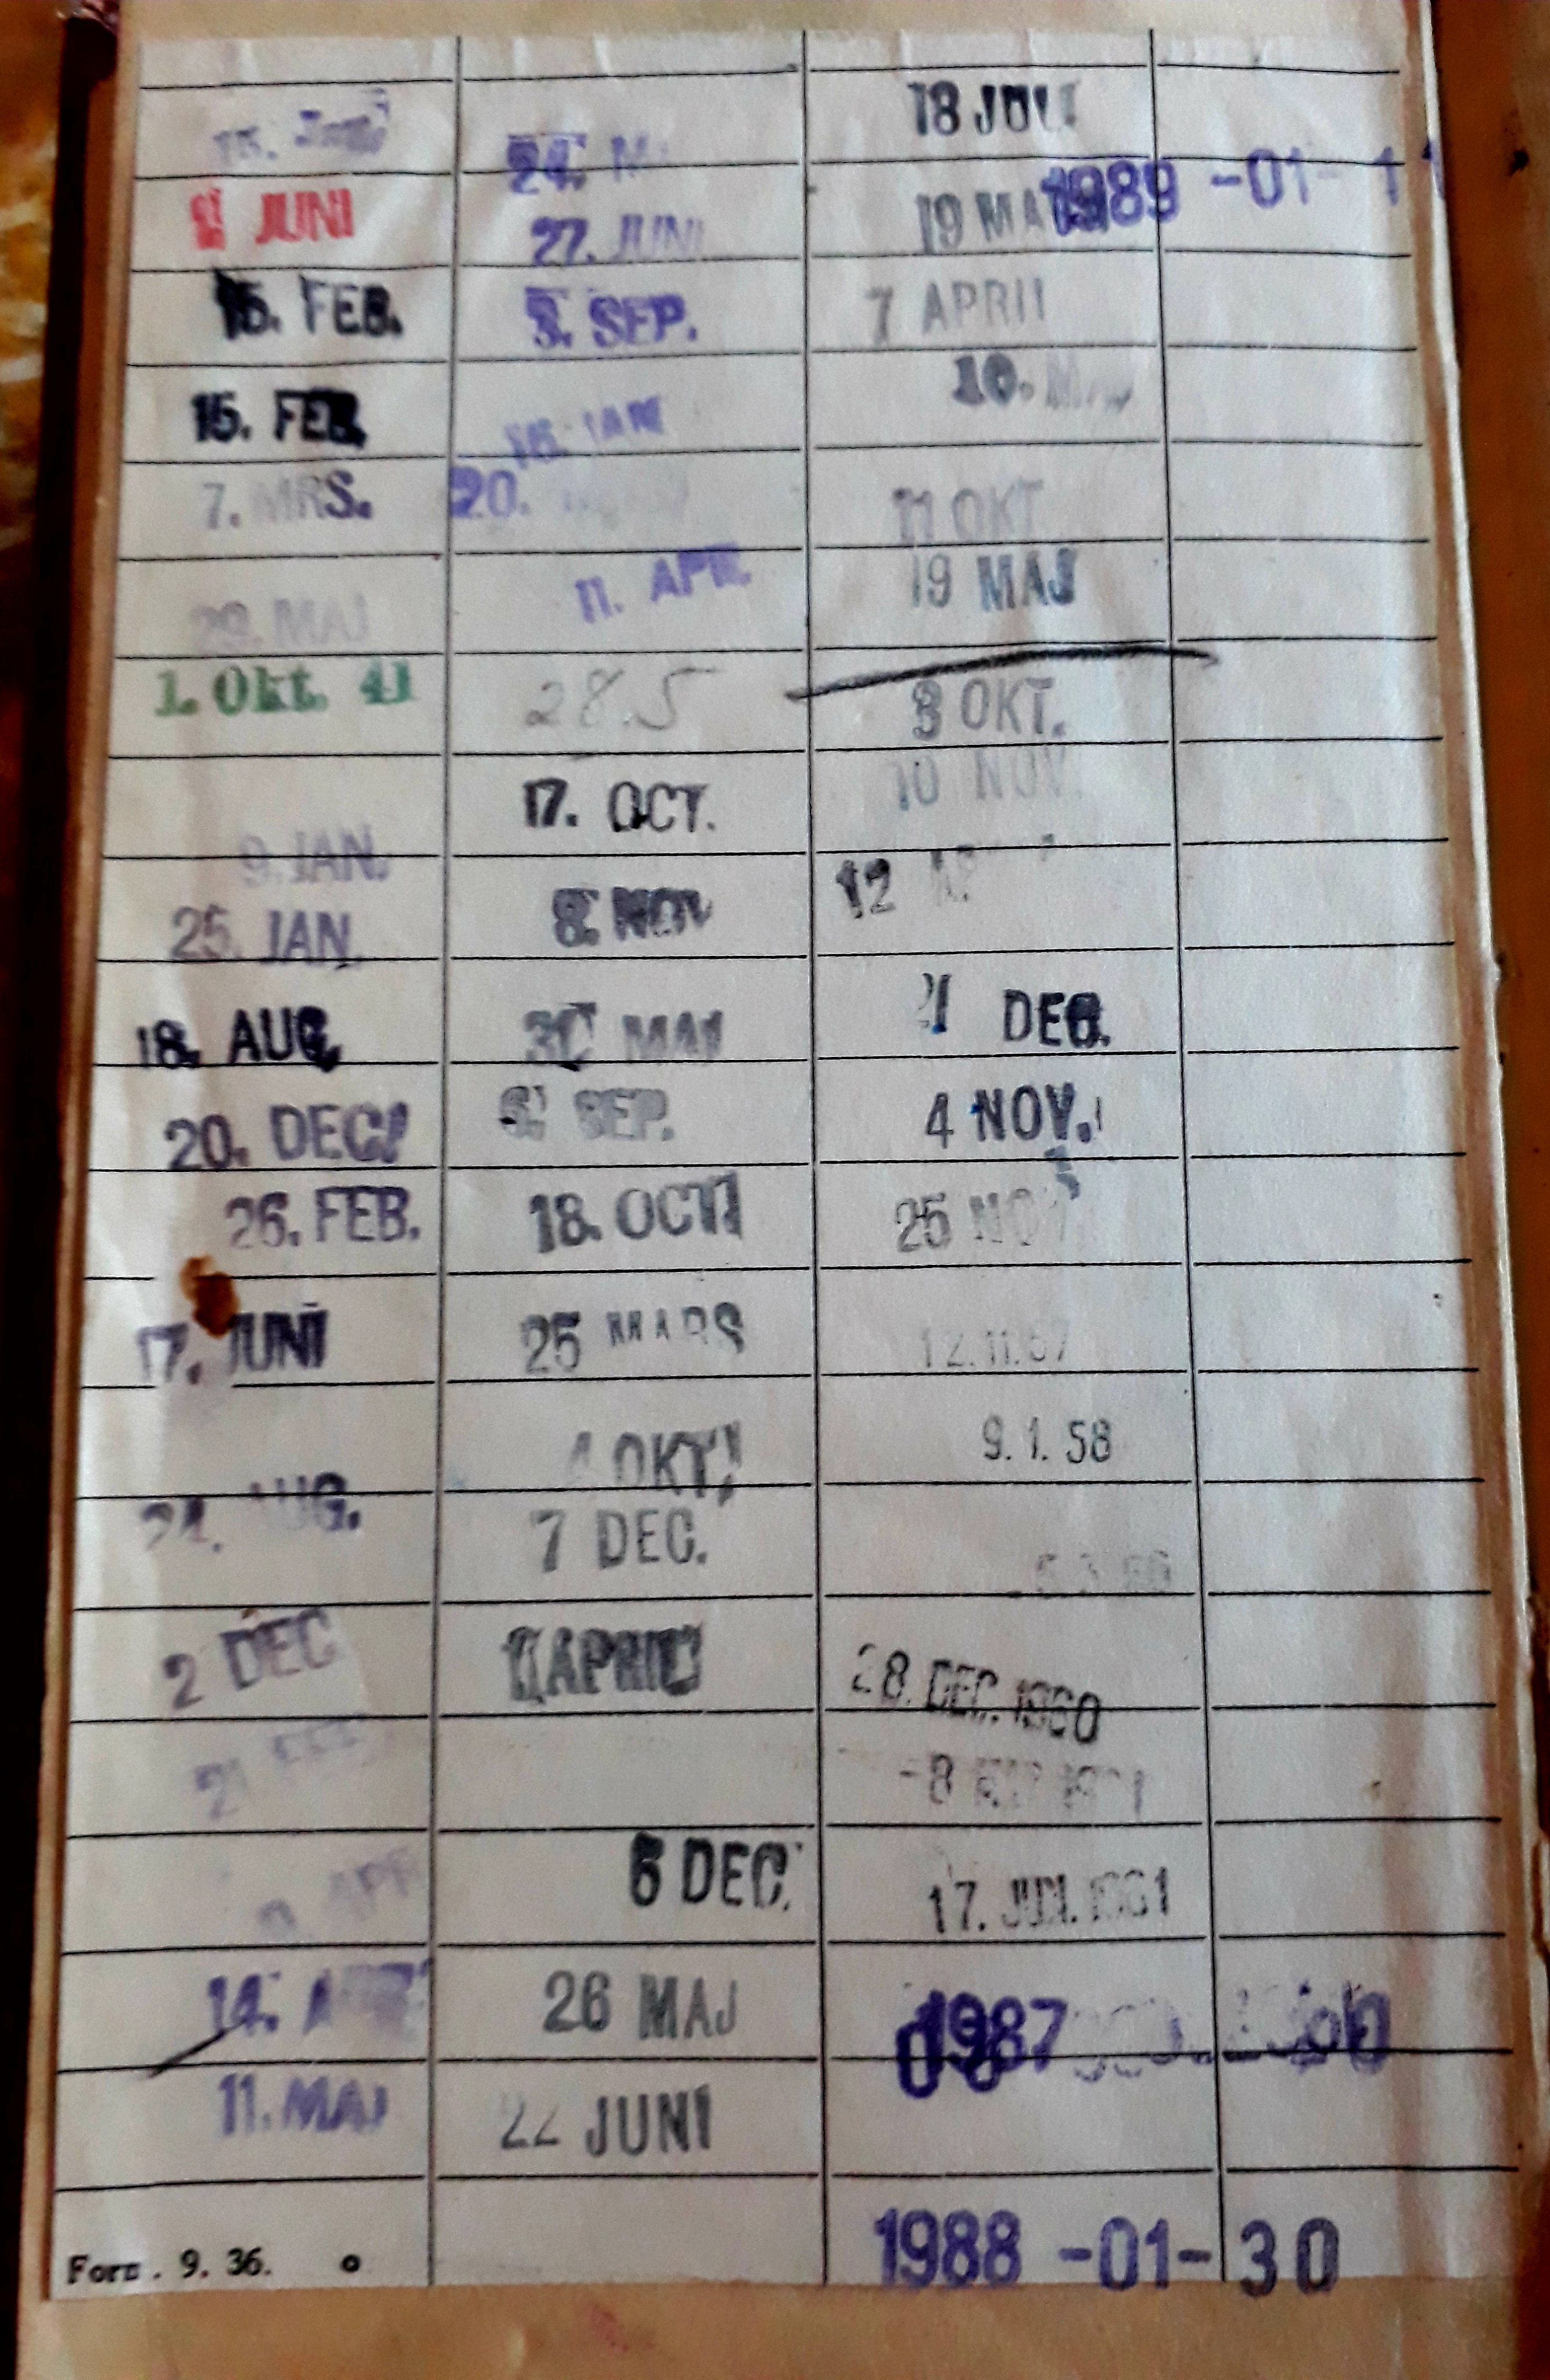 15.
JUNI
15. FEB.
15. FEB.
7. MRS.
29. MAI
1. Okt. 41
9. JAN.
25. JAN.
18. AUG.
20. DEC.
26. FEB.
17. JUNI
24. AUG.
2 DEC
21 FEB
APR
14.
11. MAJ
Form. 9. 36.
24.
27. JUNI
SEP.
16. JAN
20.
11. APR.
28.5
17. OCT.
8. NOV
30 MAI
SEP.
18. OCT
25 MARS
4 OKT
7 DEC.
APRIL
6 DEC.
26 MAJ
22 JUNI
18 JULI
19
7 APRIL
10.
11 OKT
19 MAJ
3 OKT.
10 NOV.
12
DEC.
4 NOV.
25 NOV
12.11.57
9. 1. 58
28. DEC. 1960
-8
17. 1961
1987
1988 -01- 30
1989 -01- 1